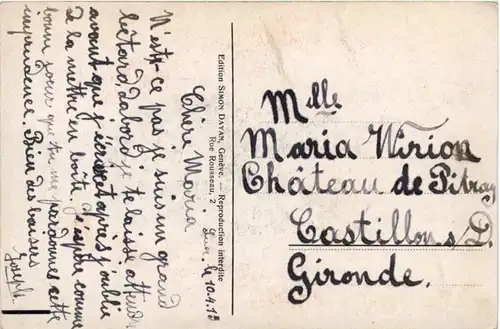 le 10.4.13
Chère Maria
N'est-ce pas je suis un grand
bêtard, d'abord je te laisse attendre
avant que j'écrive et après j'oublie
de la mettre en boîte. J'espère comme
bonne soeur que tu me pardonnes cette
imprudence. Bien des baisers
Joseph
Edition SIMON DAVAN, Genève, Reproduction interdite
Rue Rousseau, 2
Mlle
Maria Wirion
Château de Pitray
Castillon s/D
Gironde.